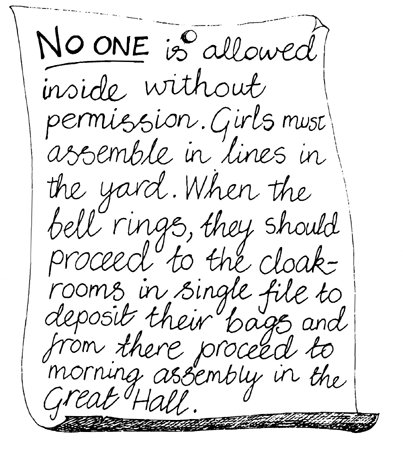 NO ONE is allowed
inside without
permission. Girls must
assemble in lines in
the yard. When the
bell rings, they should
proceed to the cloak-
rooms in single file to
deposit their bags and
from there proceed to
morning assembly in the
Great Hall.